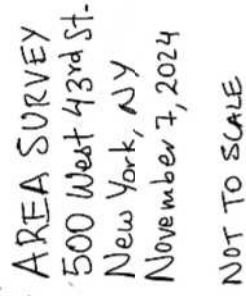 AREA SURVEY
500 West 43rd St.
New York, NY
November 7, 2024
NOT TO SCALE